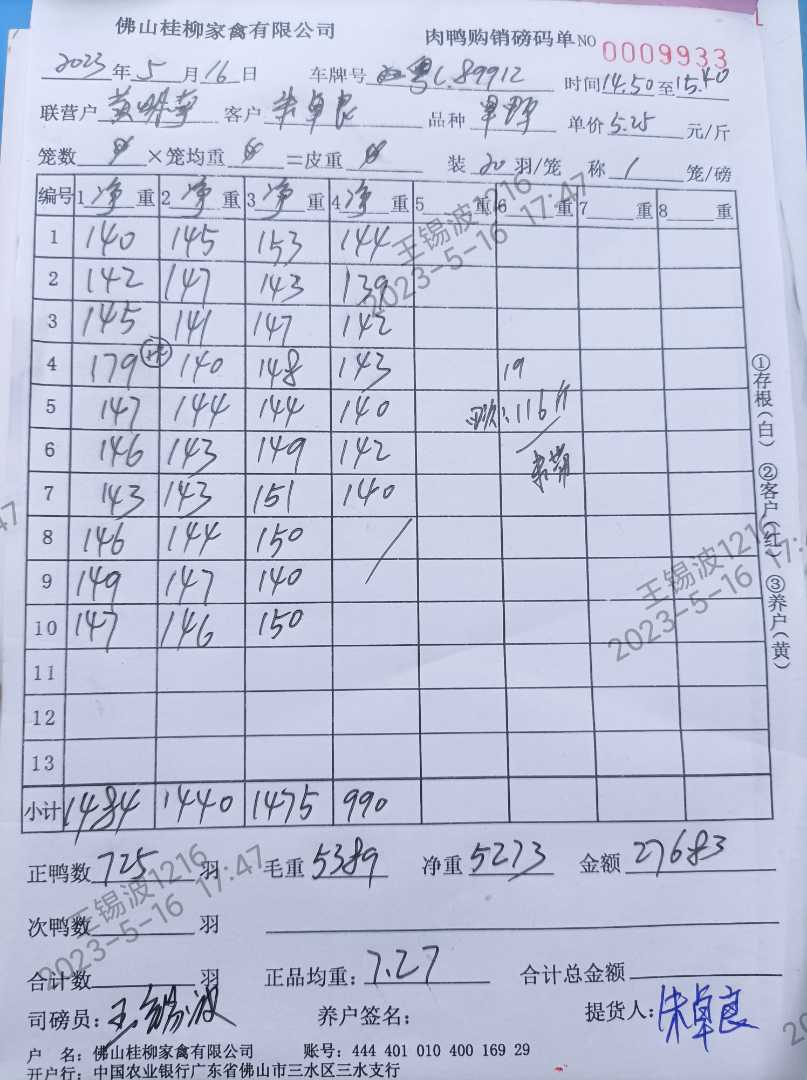 佛山桂柳家禽有限公司
肉鸭购销磅码单NO 0009933
2023年5月16日 车牌号 粤L.89912 时间14.50至15.40
联营户 黄 客户 朱卓良 品种 单价5.25元/斤
笼数0×笼均重0=皮重0 装20羽/笼 称1笼/磅
编号 1净重 2净重 3净重 4净重 5重 6重 7重 8重
1 140 145 153 144
2 142 147 143 139
3 145 141 147 142
4 179 140 148 143 19
5 147 144 144 140 116斤
6 146 143 149 142
7 143 143 151 140
8 146 144 150
9 149 147 140
10 147 146 150
11
12
13
小计 1484 1440 1475 990
正鸭数725羽 毛重5389 净重5273 金额27683
次鸭数 羽
合计数 羽 正品均重:7.27 合计总金额
司磅员:王锡波 养户签名: 提货人:朱卓良
户 名:佛山桂柳家禽有限公司 账号:444 401 010 400 169 29
开户行:中国农业银行广东省佛山市三水区三水支行
①存根(白) ②客户(红) ③养户(黄)
王锡波1216
2023-5-16 17:47
王锡波1216
2023-5-16 17:4
王锡波1216
2023-5-16 17:47
47
20